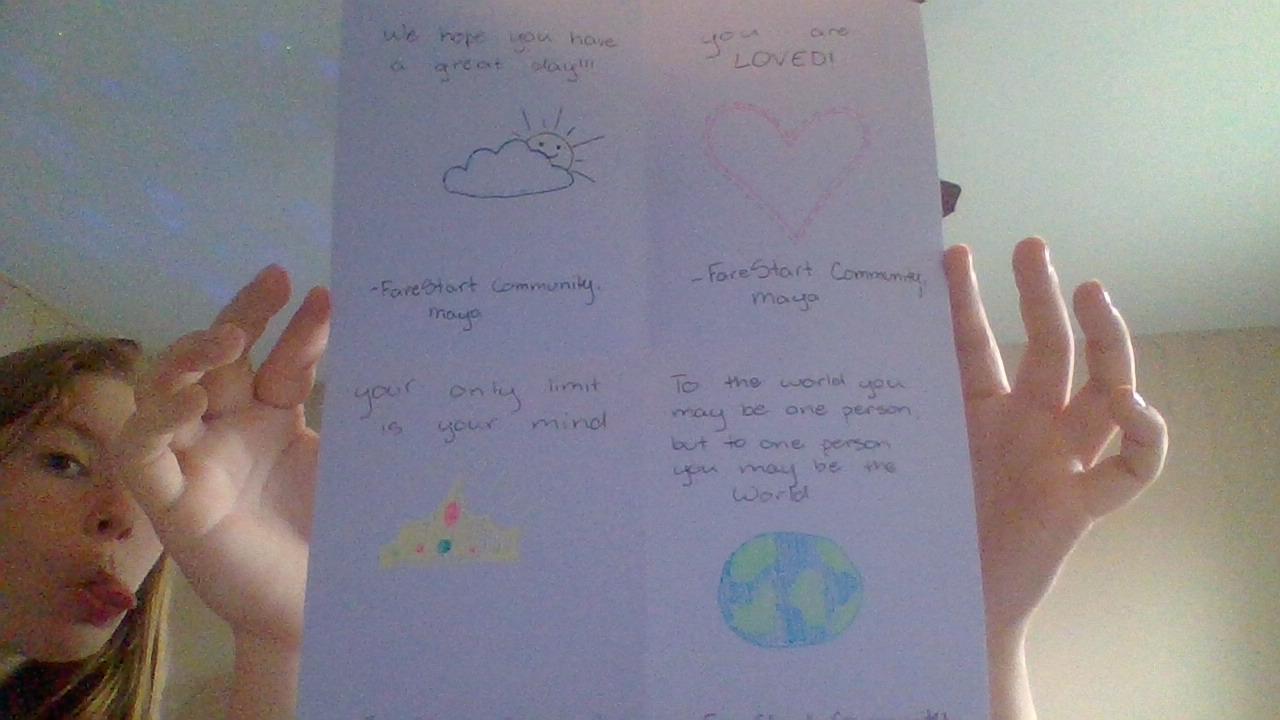 We hope you have
a great day!!!
-FareStart Community,
maya
you are
LOVED!
-FareStart Community,
maya
your only limit
is your mind
To the world you
may be one person,
but to one person
you may be the
World
FareStart Community